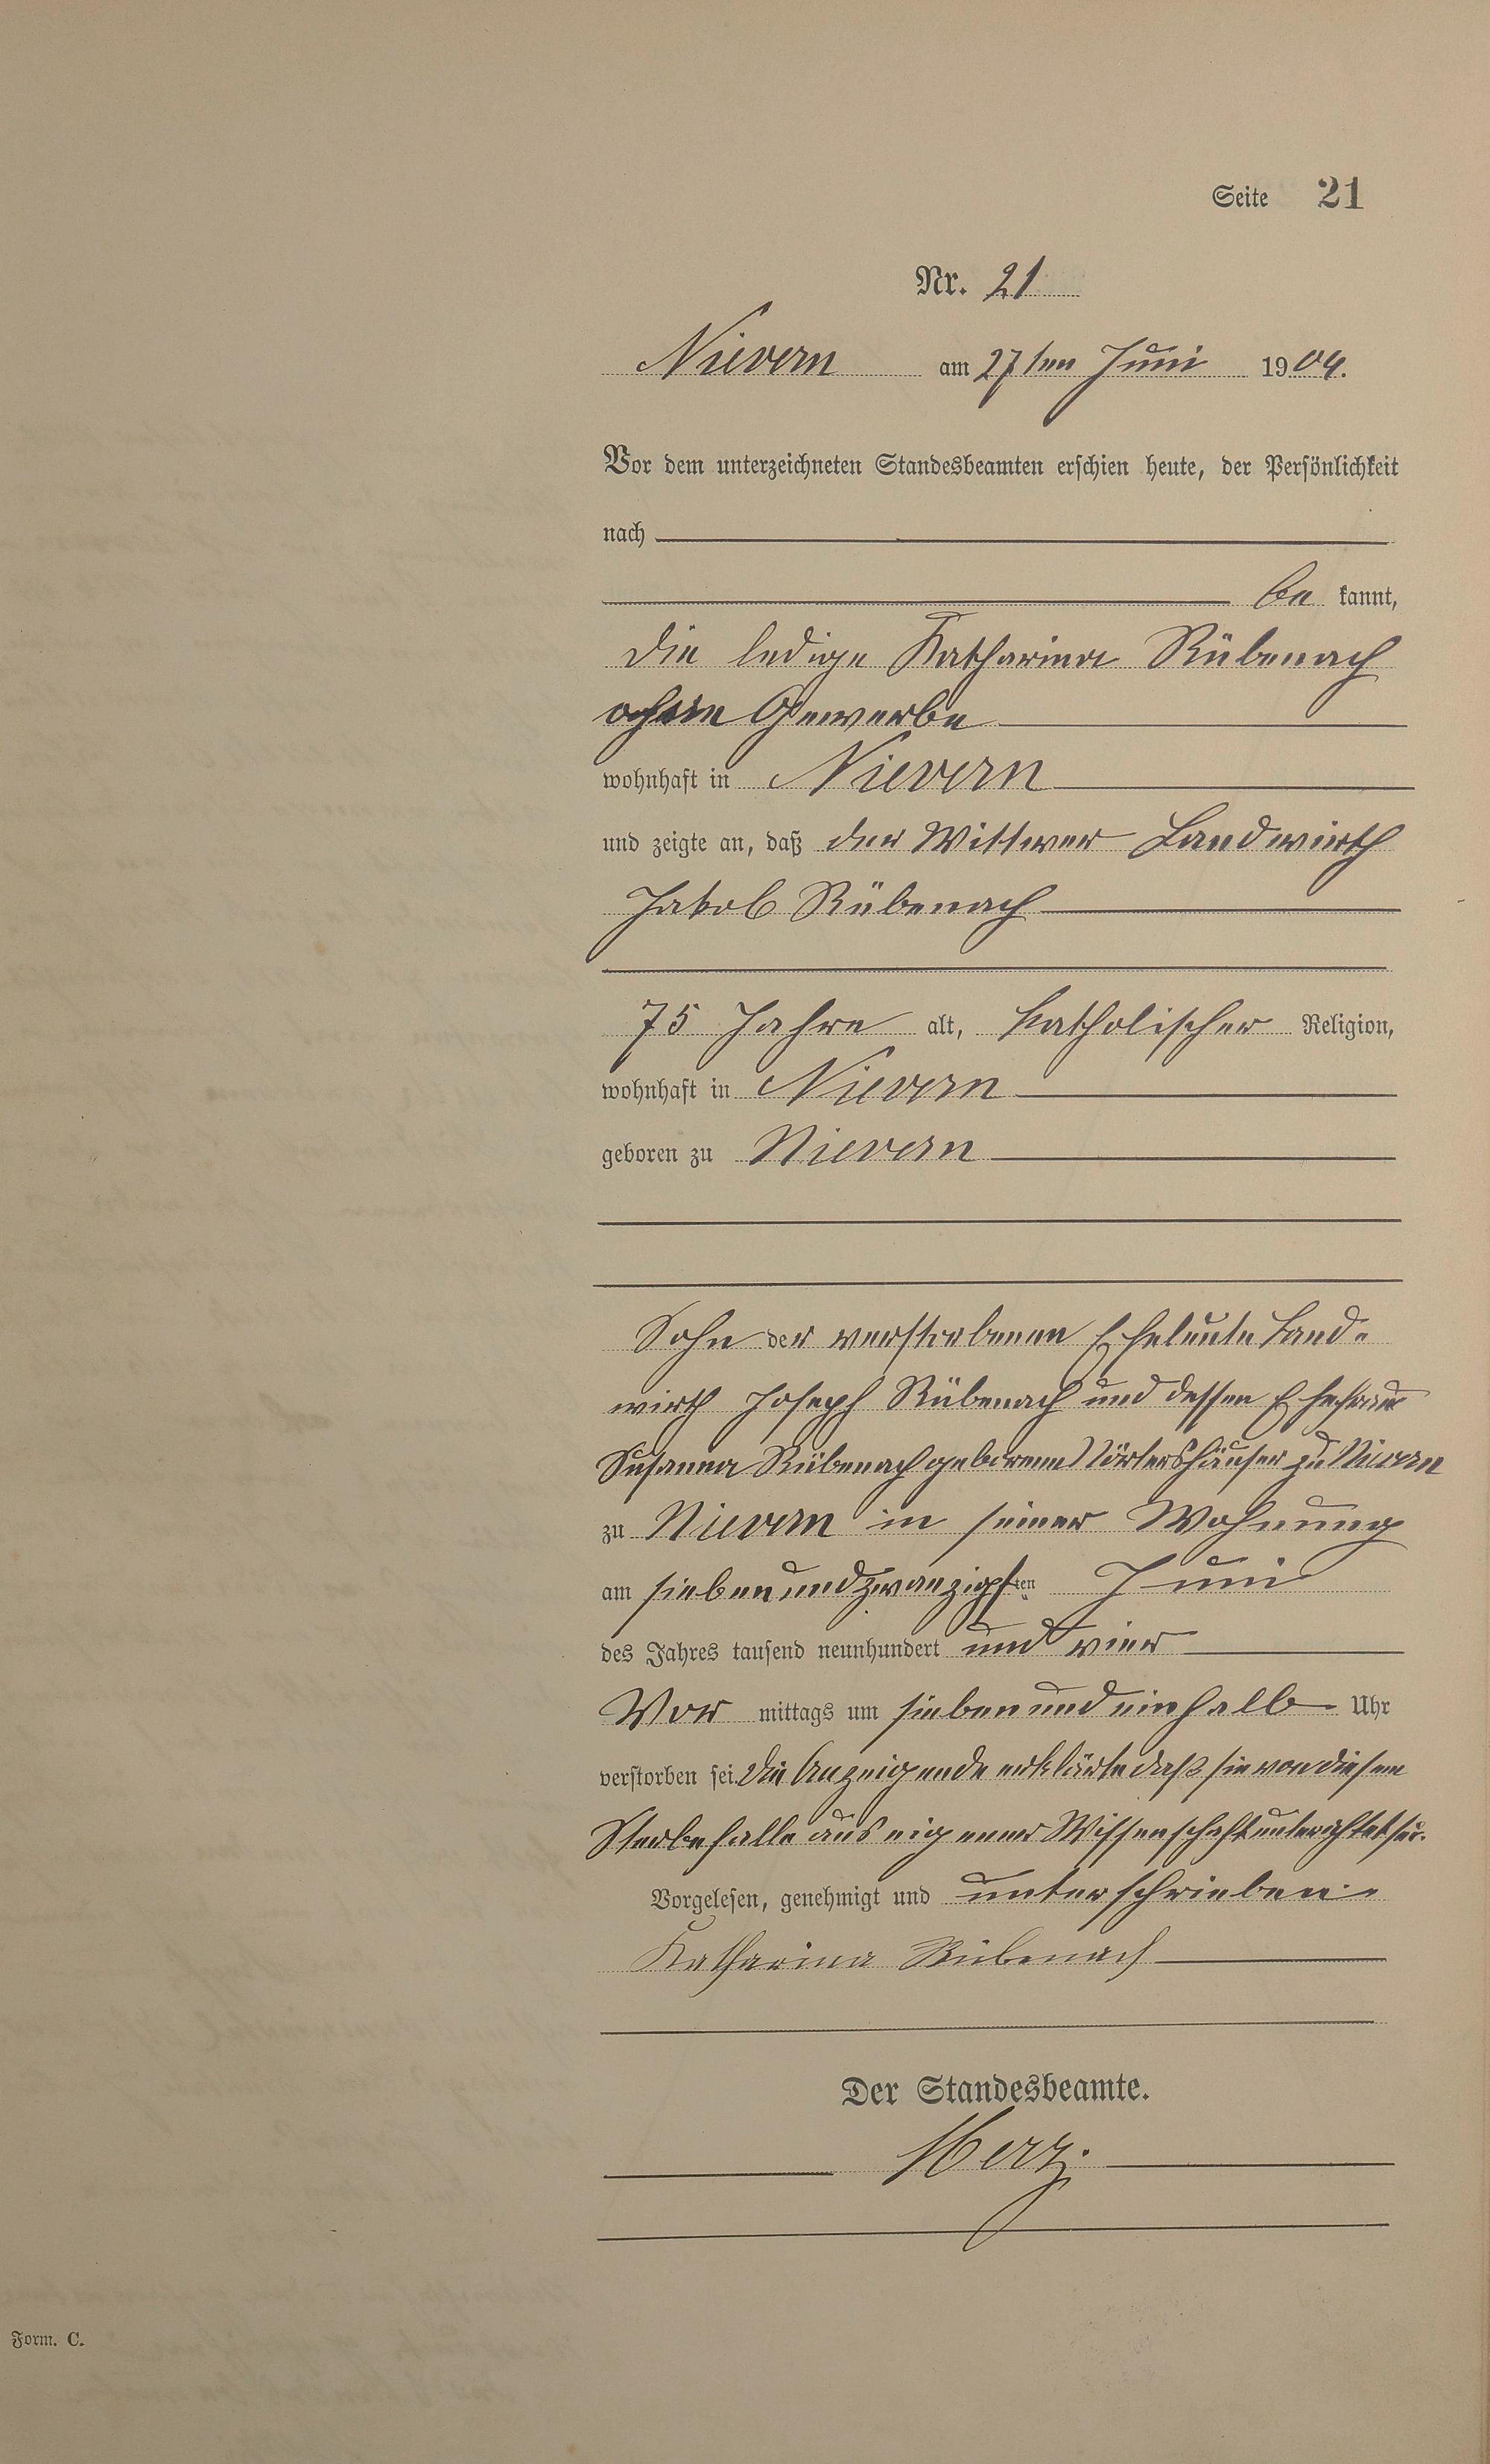 Seite 21
Nr. 21
Nievern am 27ten Juni 1904.
Vor dem unterzeichneten Standesbeamten erschien heute, der Persönlichkeit
nach
be kannt,
die ledige Katharina Rübenach
ohne Gewerbe
wohnhaft in Nievern
und zeigte an, daß der Wittwer Landwirth
Jakob Rübenach
75 Jahre alt, katholischer Religion,
wohnhaft in Nievern
geboren zu Nievern
Sohn der verstorbenen Eheleute Land-
wirth Joseph Rübenach und dessen Ehefrau
Susanna Rübenach geborene Nörtershäuser zu Nievern
zu Nievern in seiner Wohnung
am siebenundzwanzigsten Juni
des Jahres tausend neunhundert und vier
Vor mittags um sieben und einhalb Uhr
verstorben sei. Die Anzeigende erklärte daß sie von diesem
Sterbefalle aus eigener Wissenschaft unterrichtet sei.
Vorgelesen, genehmigt und unterschrieben.
Katharina Rübenach
Der Standesbeamte.
Herz.
Form. C.